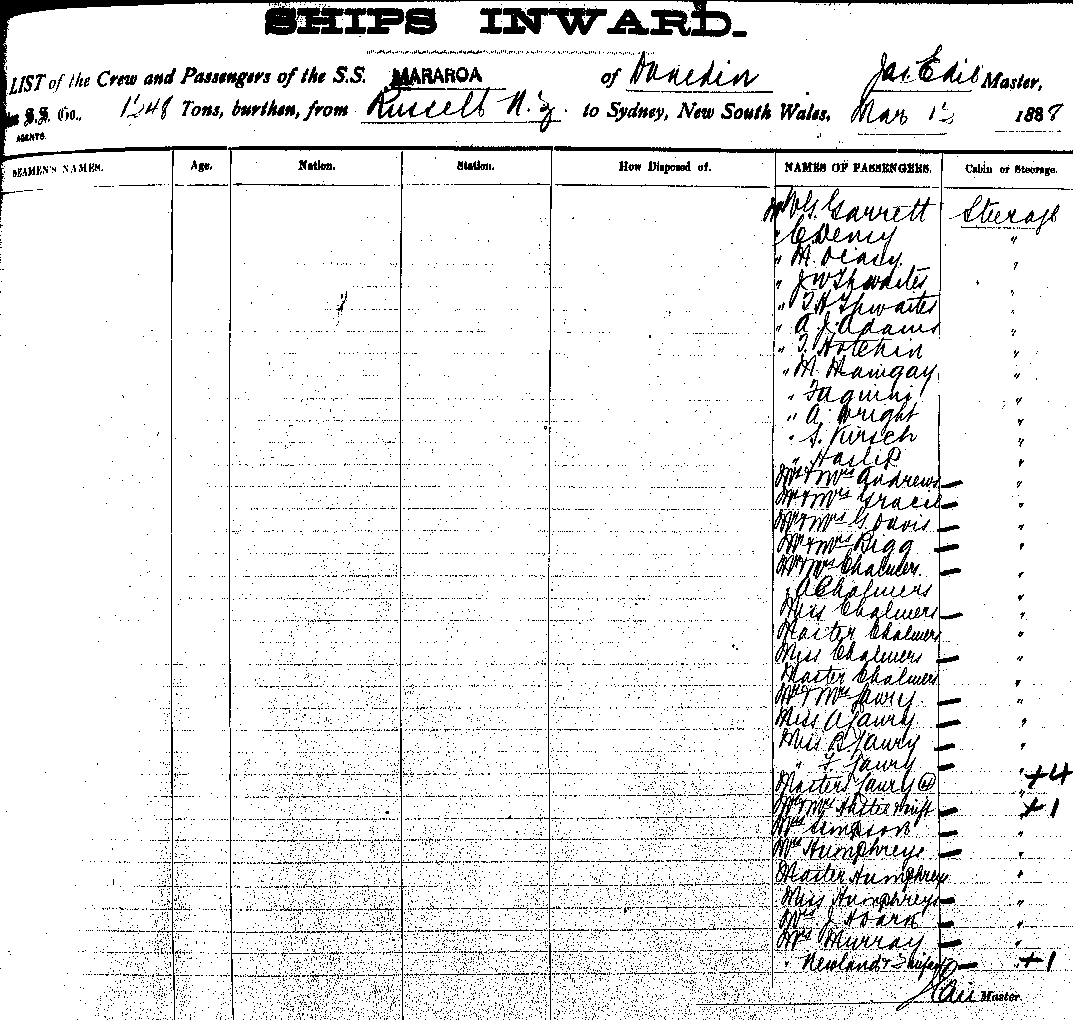 SHIPS INWARD.
LIST of the Crew and Passengers of the S.S. MARAROA of Dunedin Master,
S.S. Co., Tons, burthen, from Russell N.Z. to Sydney, New South Wales, Mar 1888
AGENTS.
SEAMEN'S NAMES. Age. Nation. Station. How Disposed of. NAMES OF PASSENGERS. Cabin or Steerage.
Garrett Steerage
" C Deny "
" M. "
" J W Thwaites "
" T H Thwaites "
" A. J. Adams "
" T. Hotchin "
" M. "
" "
" A. Wright "
" S. Kirsch "
" Haslip "
Mr & Mrs Andrews — "
Mr & Mrs Gracie — "
Mr & Mrs G. Davis — "
Mr & Mrs Bigg — "
Mr & Mrs Chalmers — "
" A Chalmers "
Miss Chalmers — "
Master Chalmers "
Miss Chalmers — "
Master Chalmers "
Mr & Mrs Jaury — "
Miss A Jaury — "
Miss B Jaury — "
" F Jaury — "
Masters Jaury " +4
Mr & Mrs — +1
Mrs Simpson — "
Mrs Humphreys — "
Master Humphreys "
Miss Humphreys — "
Mrs J — "
Mrs Murray — "
" Newland & — " +1
Master.